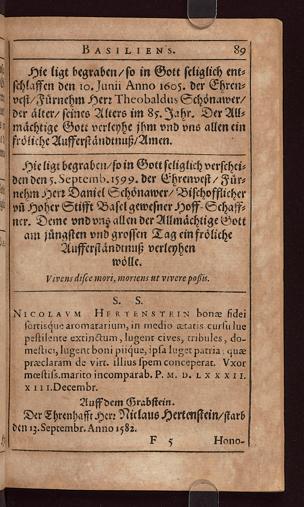 BASILIENS. 89
Hie ligt begraben/ so in Gott seliglich ent-
schlaffen den 10. Junii Anno 1605. der Ehren-
vest/ Fürnehm Herꝛ Theobaldus Schönawer/
der älter/ seines Alters im 85. Jahr. Der All-
mächtige Gott verleyhe jhm vnd vns allen ein
fröliche Aufferständtnuß/ Amen.
Hie ligt begraben/ so in Gott seliglich verschei-
den den 5. Septemb. 1599. der Ehrenvest/ Für-
nehm Herꝛ Daniel Schönawer/ Bischofflicher
vñ Hoher Stifft Basel gewesner Hoff-Schaff-
ner. Deme vnd vns allen der Allmächtige Gott
am jüngsten vnd grossen Tag ein fröliche
Aufferständtnuß verleyhen
wölle.
Vivens disce mori, mortens ut vivere possis.
S. S.
NICOLAVM HERTENSTEIN bonæ fidei
fortisque aromatarium, in medio ætatis cursu lue
pestilente extinctum, lugent cives, tribules, do-
mestici, lugent boni piique, ipsa luget patria: quæ
præclaram de virt. illius spem conceperat. Vxor
mœstiss. marito incomparab. P. M. D. LXXXII.
XIII. Decembr.
Auff dem Grabstein.
Der Ehrenhafft Herꝛ Niclaus Hertenstein/ starb
den 13. Septembr. Anno 1582.
F 5 Hono-